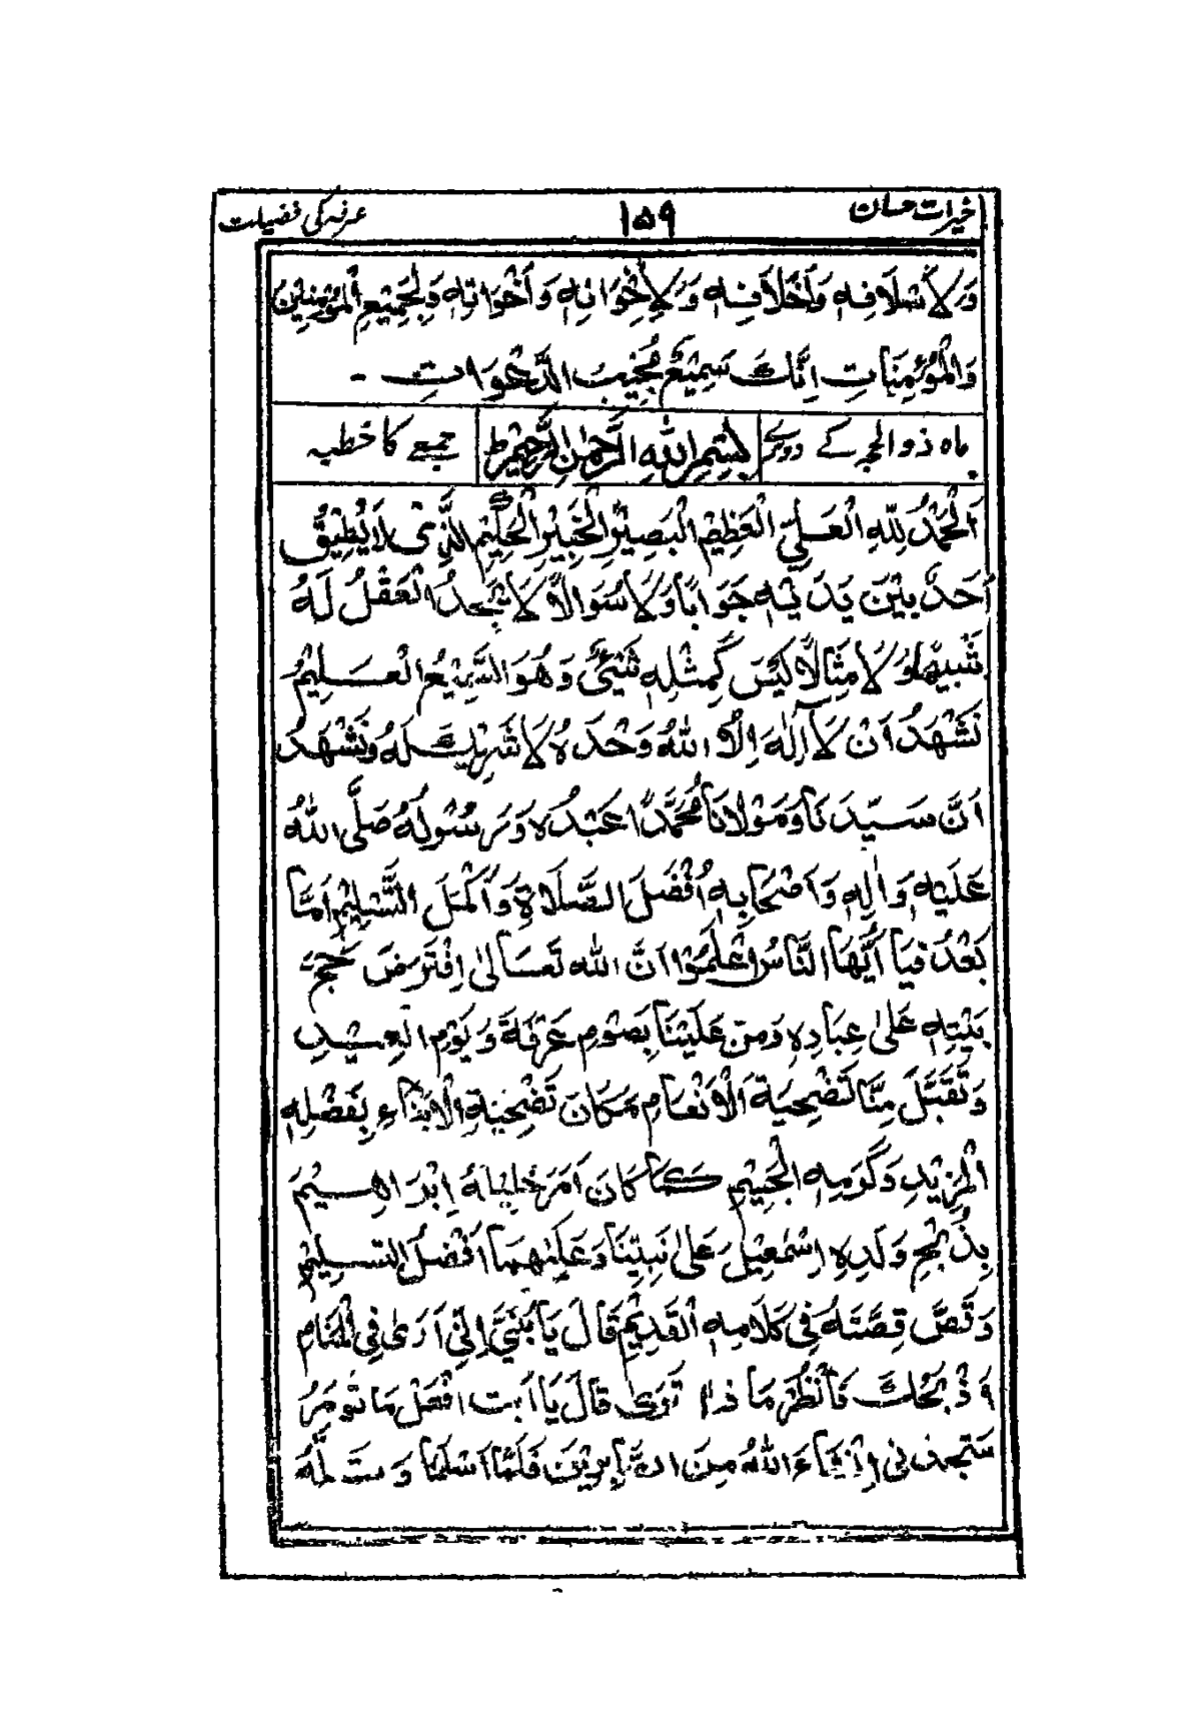 خیرات حسان ۱۵۹ عرفہ کی فضیلت
وَلِاَسْلَافِهٖ وَاَخْلَافِهٖ وَلِاِخْوَانِهٖ وَاَخْوَاتِهٖ وَلِجَمِيْعِ الْمُؤْمِنِيْنَ
وَالْمُؤْمِنَاتِ اِنَّكَ سَمِيْعٌ مُّجِيْبُ الدَّعْوَاتِ ۔
ماہ ذوالحجہ کے دوسرے بِسْمِ اللهِ الرَّحْمٰنِ الرَّحِيْمِ ط جمعے کا خطبہ
اَلْحَمْدُ لِلّٰهِ الْعَلِيِّ الْعَظِيْمِ الْبَصِيْرِ الْخَبِيْرِ الْحَكِيْمِ الَّذِىْ لَا يُطِيْقُ
اَحَدٌ بَيْنَ يَدَيْهِ جَوَابًا وَلَا سُوَالًا وَلَا يَجِدُ الْعَقْلُ لَهُ
شَبِيْهًا وَلَا مِثَالًا لَيْسَ كَمِثْلِهٖ شَيْئٌ وَهُوَ السَّمِيْعُ الْعَلِيْمُ
نَشْهَدُ اَنْ لَا اِلٰهَ اِلَّا اللهُ وَحْدَهُ لَا شَرِيْكَ لَهُ وَنَشْهَدُ
اَنَّ سَيِّدَنَا وَمَوْلَانَا مُحَمَّدًا عَبْدُهُ وَرَسُوْلُهُ صَلَّى اللهُ
عَلَيْهِ وَاٰلِهٖ وَاَصْحَابِهٖ اَفْضَلَ الصَّلَاةِ وَاَكْمَلَ التَّسْلِيْمِ اَمَّا
بَعْدُ فَيَا اَيُّهَا النَّاسُ اعْلَمُوْا اَنَّ الله تَعَالٰى اِفْتَرَضَ حَجَّ
بَيْتِهٖ عَلٰى عِبَادِهٖ وَمَنَّ عَلَيْنَا بِصَوْمِ عَرْفَةَ وَيَوْمِ الْعِيْدِ
وَتَقَبَّلَ مِنَّا تَضْحِيَةَ الْاَنْعَامِ مَكَانَ تَضْحِيَةِ الْاَبْنَاءِ بِفَضْلِهٖ
الْمَزِيْدِ وَكَرَمِهٖ الْجَسِيْمِ كَمَا كَانَ اَمَرَ خَلِيْلَهُ اِبْرَاهِيْمَ
بِذَبْحِ وَلَدِهٖ اِسْمٰعِيْلَ عَلٰى نَبِيِّنَا وَعَلَيْهِمَا اَفْضَلُ التَّسْلِيْمِ
وَقَصَّ قِصَّتَهُ فِيْ كَلَامِهٖ الْقَدِيْمِ قَالَ يَا بُنَيَّ اِنِّيْ اَرٰى فِي الْمَنَامِ
اَذْبَحُكَ فَانْظُرْ مَا ذَا تَرٰى قَالَ يَا اَبَتِ افْعَلْ مَا تُؤْمَرُ
سَتَجِدُنِيْ اِنْ شَاءَ اللهُ مِنَ الصَّابِرِيْنَ فَلَمَّا اَسْلَمَا وَتَلَّهُ